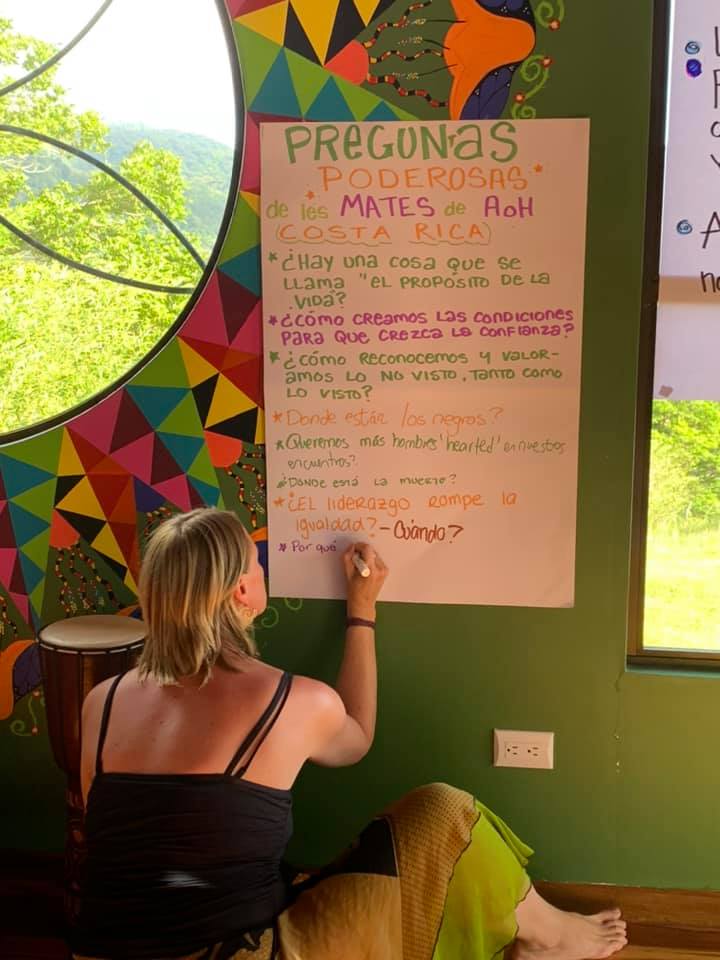 PREGUNTAS
PODEROSAS
de les MATES de AoH
(COSTA RICA)
* ¿HAY UNA COSA QUE SE
LLAMA "EL PROPOSITO DE LA
VIDA?
* ¿CÓMO CREAMOS LAS CONDICIONES
PARA QUE CREZCA LA CONFIANZA?
* ¿CÓMO RECONOCEMOS Y VALOR-
AMOS LO NO VISTO, TANTO COMO
LO VISTO?
* Donde están los negros?
* Queremos más hombres 'hearted' en nuestros
encuentros?
¿DÓNDE ESTÁ LA MUERTE?
* ¿EL liderazgo rompe la
igualdad? - Cuándo?
* Por qué